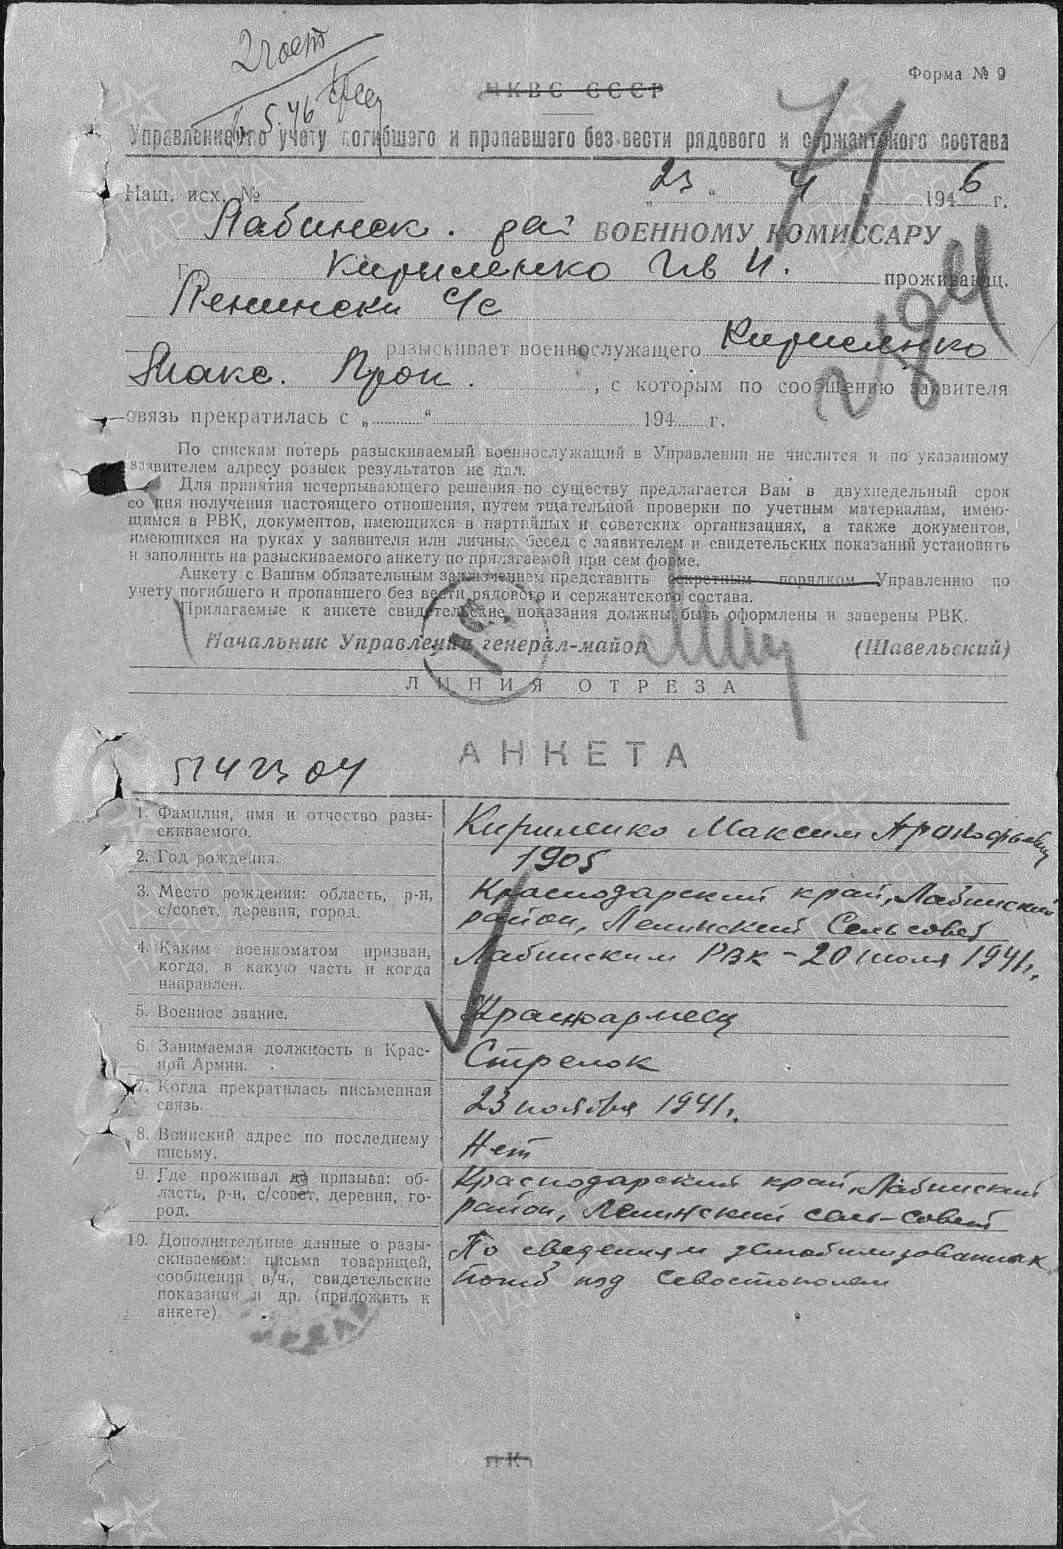 2 гоент
5.46
Форма № 9
НКВС СССР
Управление по учету погибшего и пропавшего без вести рядового и сержантского состава
71
Наш. исх. №
„23“ 4 1946 г.
Лабинск. рай ВОЕННОМУ КОМИССАРУ
Г. Кириленко Ив И. проживающ.
Ленински с/с
разыскивает военнослужащего Кириленко
Макс. Проп. , с которым по сообщению заявителя
связь прекратилась с „ “ 194 г.
По спискам потерь разыскиваемый военнослужащий в Управлении не числится и по указанному
заявителем адресу розыск результатов не дал.
Для принятия исчерпывающего решения по существу предлагается Вам в двухнедельный срок
со дня получения настоящего отношения, путем тщательной проверки по учетным материалам, имею-
щимся в РВК, документов, имеющихся в партийных и советских организациях, а также документов,
имеющихся на руках у заявителя или личных бесед с заявителем и свидетельских показаний установить
и заполнить на разыскиваемого анкету по прилагаемой при сем форме.
Анкету с Вашим обязательным заключением представить секретным порядком Управлению по
учету погибшего и пропавшего без вести рядового и сержантского состава.
Прилагаемые к анкете свидетельские показания должны быть оформлены и заверены РВК.
Начальник Управления генерал-майор (Шавельский)
ЛИНИЯ ОТРЕЗА
АНКЕТА
1. Фамилия, имя и отчество разы-
скиваемого.
Кириленко Максим Прокофьевич
2. Год рождения.
1905
3. Место рождения: область, р-н,
с/совет, деревня, город.
Краснодарский край, Лабинский
район, Ленинский Сельсовет
4. Каким военкоматом призван,
когда, в какую часть и когда
направлен.
Лабинским РВК - 20 июля 1941г.
5. Военное звание.
Красноармеец
6. Занимаемая должность в Крас-
ной Армии.
Стрелок
7. Когда прекратилась письменная
связь.
23 ноября 1941г.
8. Воинский адрес по последнему
письму.
Нет
9. Где проживал до призыва: об-
ласть, р-н, с/совет, деревня, го-
род.
Краснодарский край, Лабинский
район, Ленинский сель-совет
10. Дополнительные данные о разы-
скиваемом: письма товарищей,
сообщения в/ч., свидетельские
показания и др. (приложить к
анкете)
По сведениям демобилизованных
погиб под Севостополем